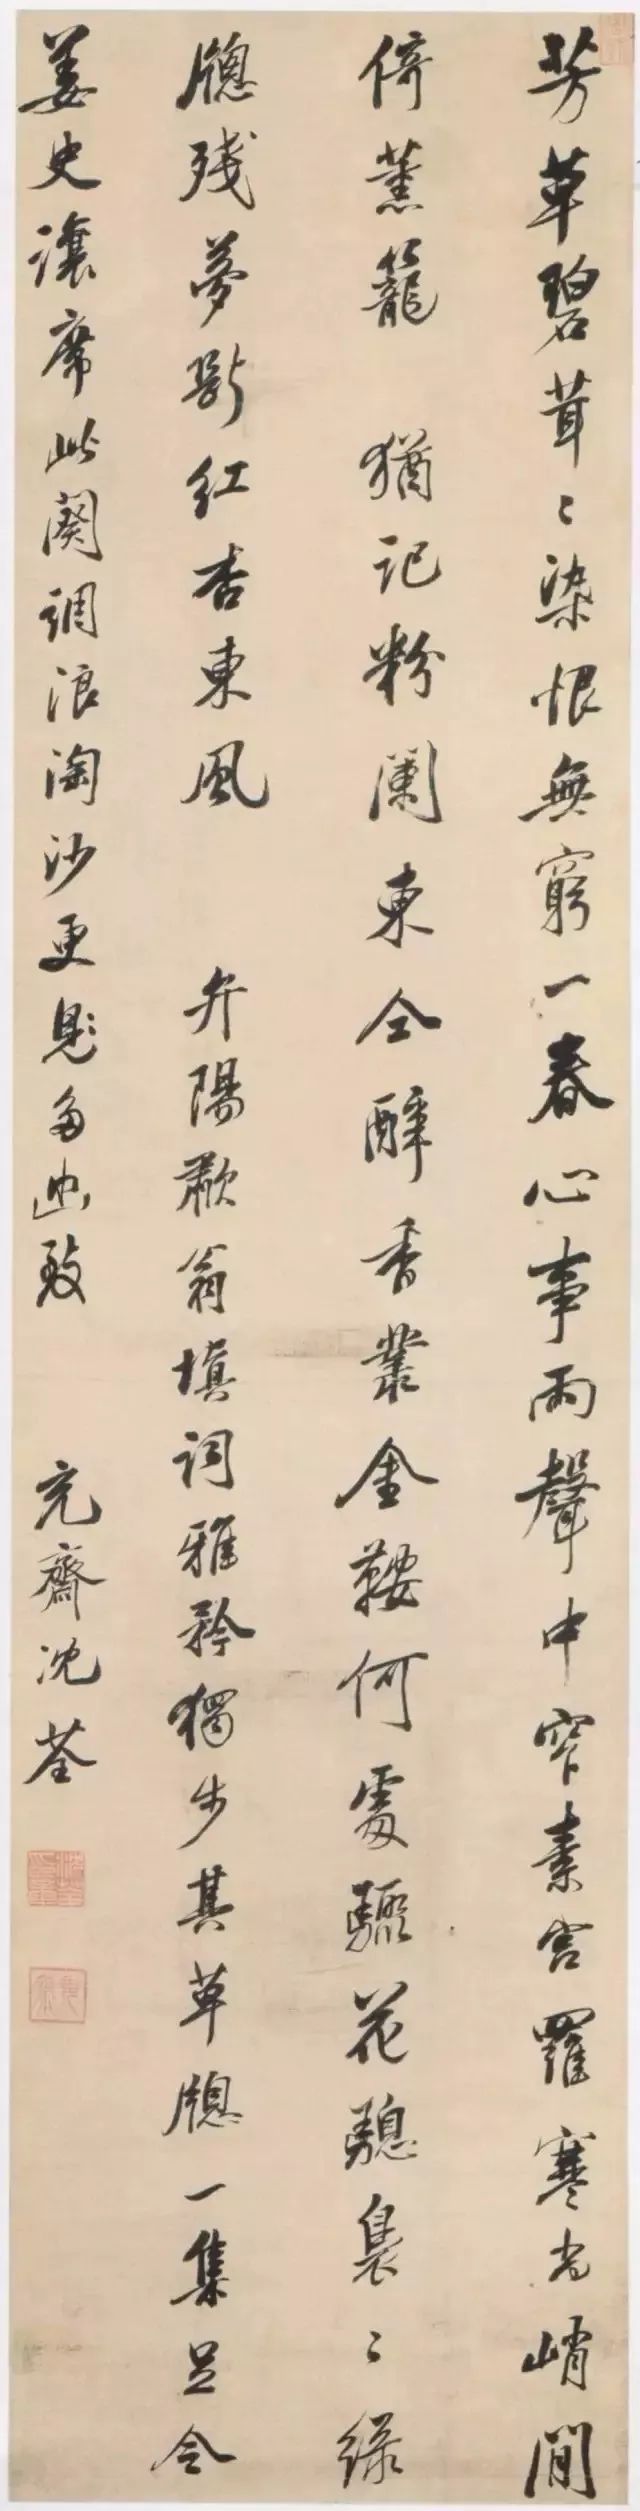 芳草碧茸〻染恨無窮一春心事雨聲中窄素宮羅寒尚峭閒
倚薰籠　猶記粉闌東同醉香叢金鞍何處驟花驄裊〻綠
牕殘夢斷紅杏東風　弁陽歗翁填詞雅矜獨步其草牕一集足令
姜史讓席此闋調浪淘沙更覺多幽致　充齋沈荃